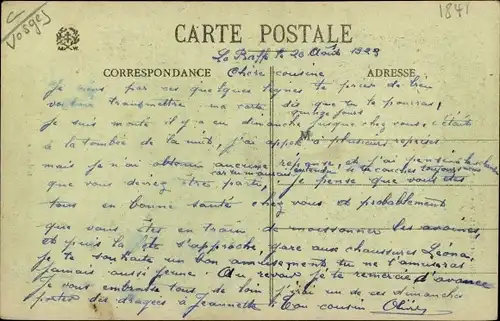 Vosges
1841
CARTE POSTALE
Le 20 Août 1923
CORRESPONDANCE
Chère cousine
ADRESSE
Je viens par ces quelques lignes te prier de bien
vouloir transmettre ma carte dès que tu le pourras,
quinze jours
Je suis monté il y a eu dimanche jusque chez vous c'était
à la tombée de la nuit, j'ai appelé à plusieurs reprises
mais je n'ai obtenu aucune réponse, et j'ai pensé
que vous deviez être partis, je pense que vous êtes
tous en bonne santé chez vous et probablement
que vous êtes en train de moissonner les avoines,
et puis la fête s'approche, gare aux chaussures Léona,
je te souhaite un bon amusement, tu ne t'amuseras
jamais aussi jeune. Au revoir je te remercie d'avance
je vous embrasse tous de loin j'irai un de ces dimanches
porter des dragées à Jeannette. Ton cousin